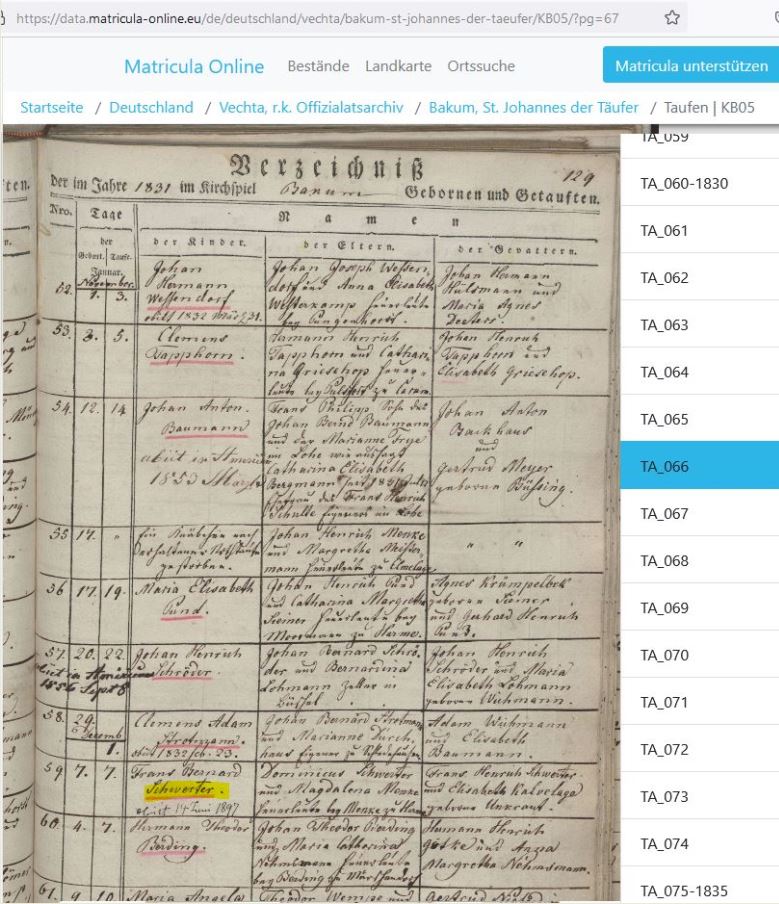 https://data.matricula-online.eu/de/deutschland/vechta/bakum-st-johannes-der-taeufer/KB05/?pg=67
Matricula Online Bestände Landkarte Ortssuche Matricula unterstützen
Startseite / Deutschland / Vechta, r.k. Offizialatsarchiv / Bakum, St. Johannes der Täufer / Taufen | KB05
Verzeichniß
129
der im Jahre 1831 im Kirchspiel Bakum Gebornen und Getauften.
Nro. Tage Namen
der
Geburt. Taufe. der Kinder. der Eltern. der Gevattern.
Januar.
November.
52. 1. 3.
Johan
Hermann
Wessendorf
obiit 1832 März 31.
Johan Joseph Wessen-
dorf und Anna Elisabeth
Westerkamp Heuerleute
Johan Hermann
Hülsmann und
Maria Agnes
53. 3. 5.
Clemens
Tapphorn.
Hermann Henrich
Tapphorn und Cathari-
na Grieshop Heuer-
leute bey
Johan Henrich
Tapphorn und
Elisabeth Grieshop.
54. 12. 14.
Johan Anton.
Baumann
1853
Frans Philipp Sohn des
Johan Bernd Baumann
und der Marianne
Catharina Elisabeth
Bergmann
des Frans Henrich
Schulte
Johan Anton
Backhaus
und
Gertrud Meyer
geborne Büssing.
55 17. "
Ein Knäbchen nach
erhaltener Nothtaufe
gestorben.
Johan Henrich Menke
und Margretha
mann Heuerleute zu
" "
56 17. 19.
Maria Elisabeth
Pund.
Johan Henrich Pund
und Catharina Margreth
Heuerleute bey
Moormann zu Harme.
Agnes Krümpelbek
geborne
und Gerhard Henrich
Pund.
57. 20. 22.
Johan Henrich
Schröder.
1856 Sept 8
Johan Bernard Schrö-
der und Bernardina
Lohmann Zeller in
Büschel.
Johan Henrich
Schröder und Maria
Elisabeth Lohmann
geborne Wichmann.
58. 29.
Decemb
1.
Clemens Adam
Strotmann.
obiit 1832 Feb. 23.
Johan Bernard Strotman
und Marianne
Adam Wichmann
und Elisabeth
Baumann.
59. 7. 7.
Frans Bernard
Schwerter.
obiit 14 Juni 1897
Dominicus Schwerter
und Magdalena Menke
Heuerleute bey Menke zu Harme
Frans Henrich Schwerter
und Elisabeth Kalvelage
geborne Unkraut.
60. 4. 7.
Herman Theodor
Berding.
Johan Theodor Berding
und Maria Catharina
Heuerleute
bey Berding zu
Hermann Henrich
und Anna
Margretha
61. 9 10
Maria Angela
Theodor Wempe und
Gertrud
TA_059
TA_060-1830
TA_061
TA_062
TA_063
TA_064
TA_065
TA_066
TA_067
TA_068
TA_069
TA_070
TA_071
TA_072
TA_073
TA_074
TA_075-1835